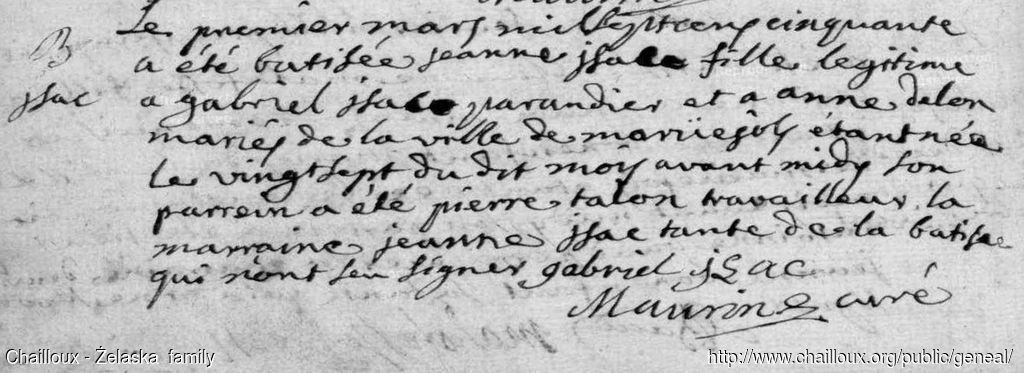 Le premier mars mil sept cens cinquante
B
a été batisée jeanne jsac fille legitime
jsac
a gabriel jsac parandier et a anne delon
mariés de la ville de maruejols étant née
le vingt sept du dit mois avant midy son
parrein a été pierre talon travailleur la
marraine jeanne jsac tante de la batisée
qui n'ont seu signer gabriel jSAC
Maurin curé
Chailloux - Żelaska family
http://www.chailloux.org/public/geneal/